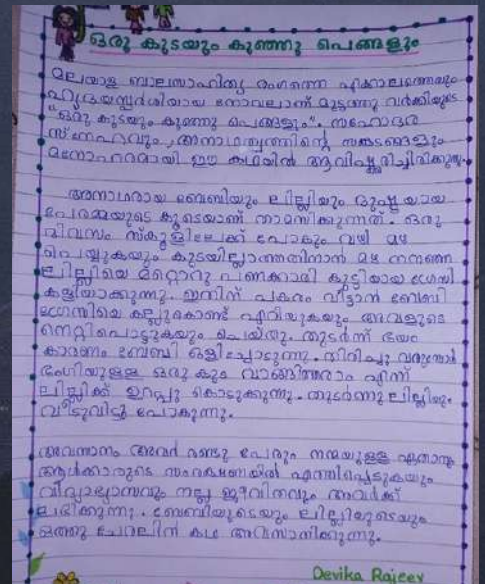 ഒരു കുടയും കുഞ്ഞു പെങ്ങളും
മലയാള ബാലസാഹിത്യ രംഗത്തെ എക്കാലത്തെയും
ഹൃദയസ്പർശിയായ നോവലാണ് മുട്ടത്തു വർക്കിയുടെ
"ഒരു കുടയും കുഞ്ഞു പെങ്ങളും". സഹോദര
സ്നേഹവും, അനാഥത്വത്തിന്റെ സങ്കടങ്ങളും
മനോഹരമായി ഈ കഥയിൽ ആവിഷ്കരിച്ചിരിക്കുന്നു.
അനാഥരായ ബേബിയും ലില്ലിയും ദുഷ്ടയായ
പേരമ്മയുടെ കൂടെയാണ് താമസിക്കുന്നത്. ഒരു
ദിവസം സ്കൂളിലേക്ക് പോകും വഴി മഴ
പെയ്യുകയും കുടയില്ലാത്തതിനാൽ മഴ നനഞ്ഞ
ലില്ലിയെ മറ്റൊരു പണക്കാരി കുട്ടിയായ ഗ്രേസി
കളിയാക്കുന്നു. ഇതിന് പകരം വീട്ടാൻ ബേബി
ഗ്രേസിയെ കല്ലുകൊണ്ട് എറിയുകയും അവളുടെ
നെറ്റിപൊട്ടുകയും ചെയ്തു. തുടർന്ന് ഭയം
കാരണം ബേബി ഒളിച്ചോടുന്നു. തിരിച്ചു വരുമ്പോൾ
ഭംഗിയുള്ള ഒരു കുട വാങ്ങിത്തരാം എന്ന്
ലില്ലിക്ക് ഉറപ്പു കൊടുക്കുന്നു. തുടർന്നു ലില്ലിയും
വീടുവിട്ടു പോകുന്നു.
അവസാനം അവർ രണ്ടു പേരും നന്മയുള്ള ഏതാനും
ആൾക്കാരുടെ സംരക്ഷണയിൽ എത്തിപ്പെടുകയും
വിദ്യാഭ്യാസവും നല്ല ജീവിതവും അവർക്ക്
ലഭിക്കുന്നു. ബേബിയുടെയും ലില്ലിയുടെയും
ഒത്തു ചേരലിൻ കഥ അവസാനിക്കുന്നു.
Devika Rajeev